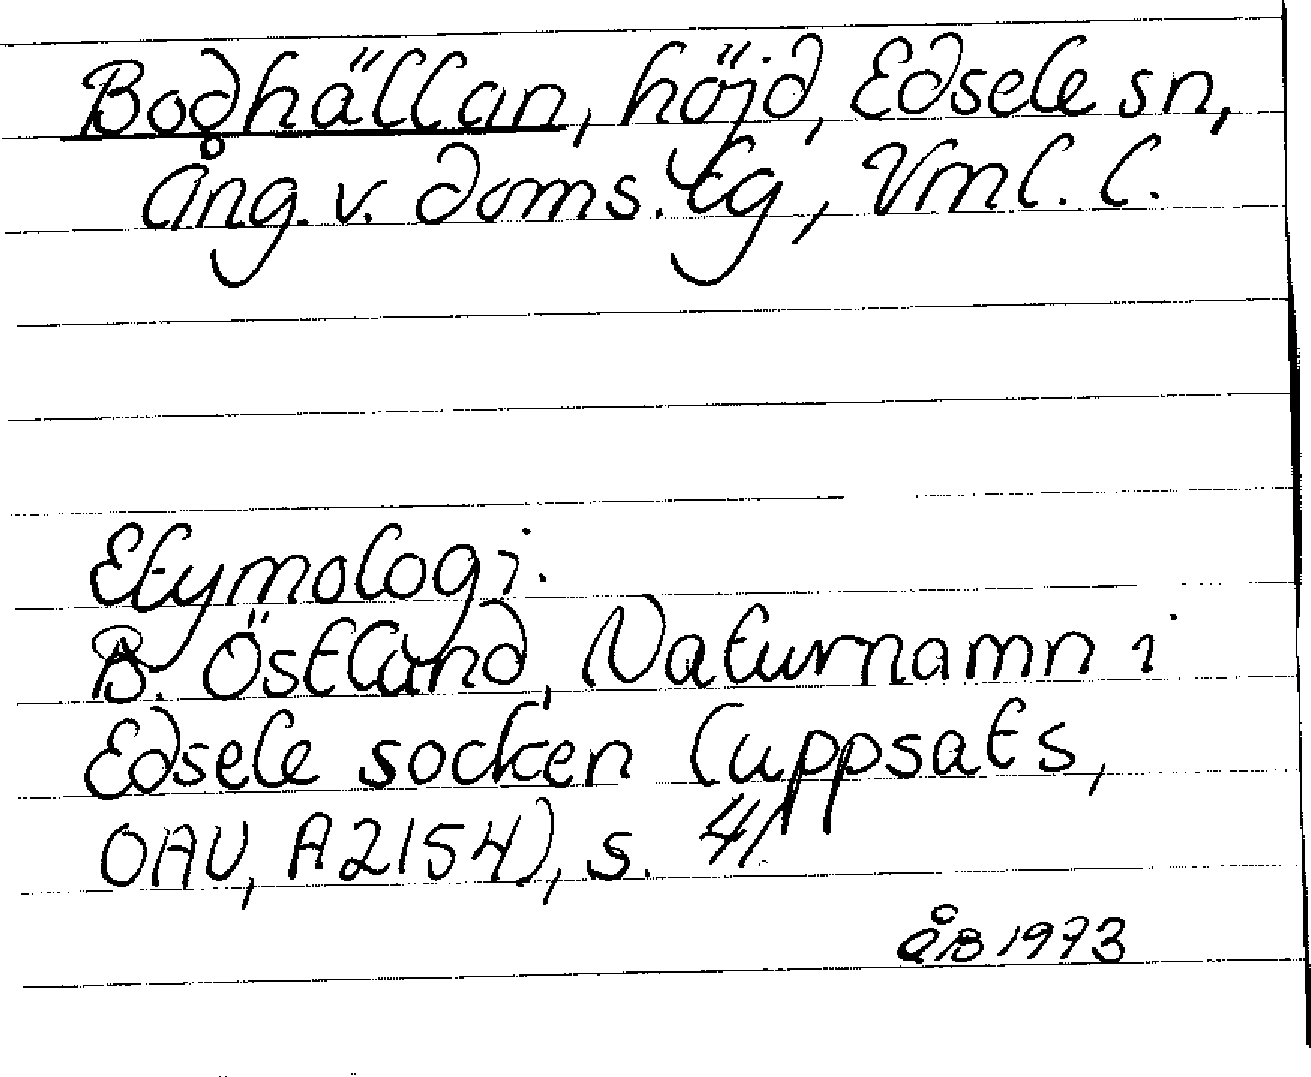 Bodhällan, höjd, Edsele sn,
Ång. v. doms. tg, Vml. l.
Etymologi.
B. Östlund, Naturnamn i
Edsele socken (uppsats,
OAU, A2154), s. 41.
ÅB 1973